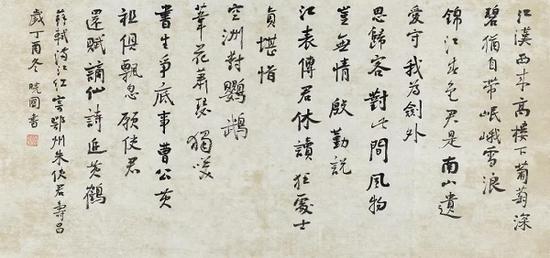 江漢西来高樓下葡萄深
碧猶自帶岷峨雪浪
錦江春色君是南山遺
愛守我為劍外
思歸客對此間風物
豈無情殷勤説
江表傳君休讀狂處士
真堪惜
空洲對鸚鵡
葦花蕭瑟獨笑
書生爭底事曹公黄
祖俱飄忽願使君
還賦謫仙詩追黄鶴
蘇軾满江红寄鄂州朱使君壽昌
歲丁酉冬 晓園書